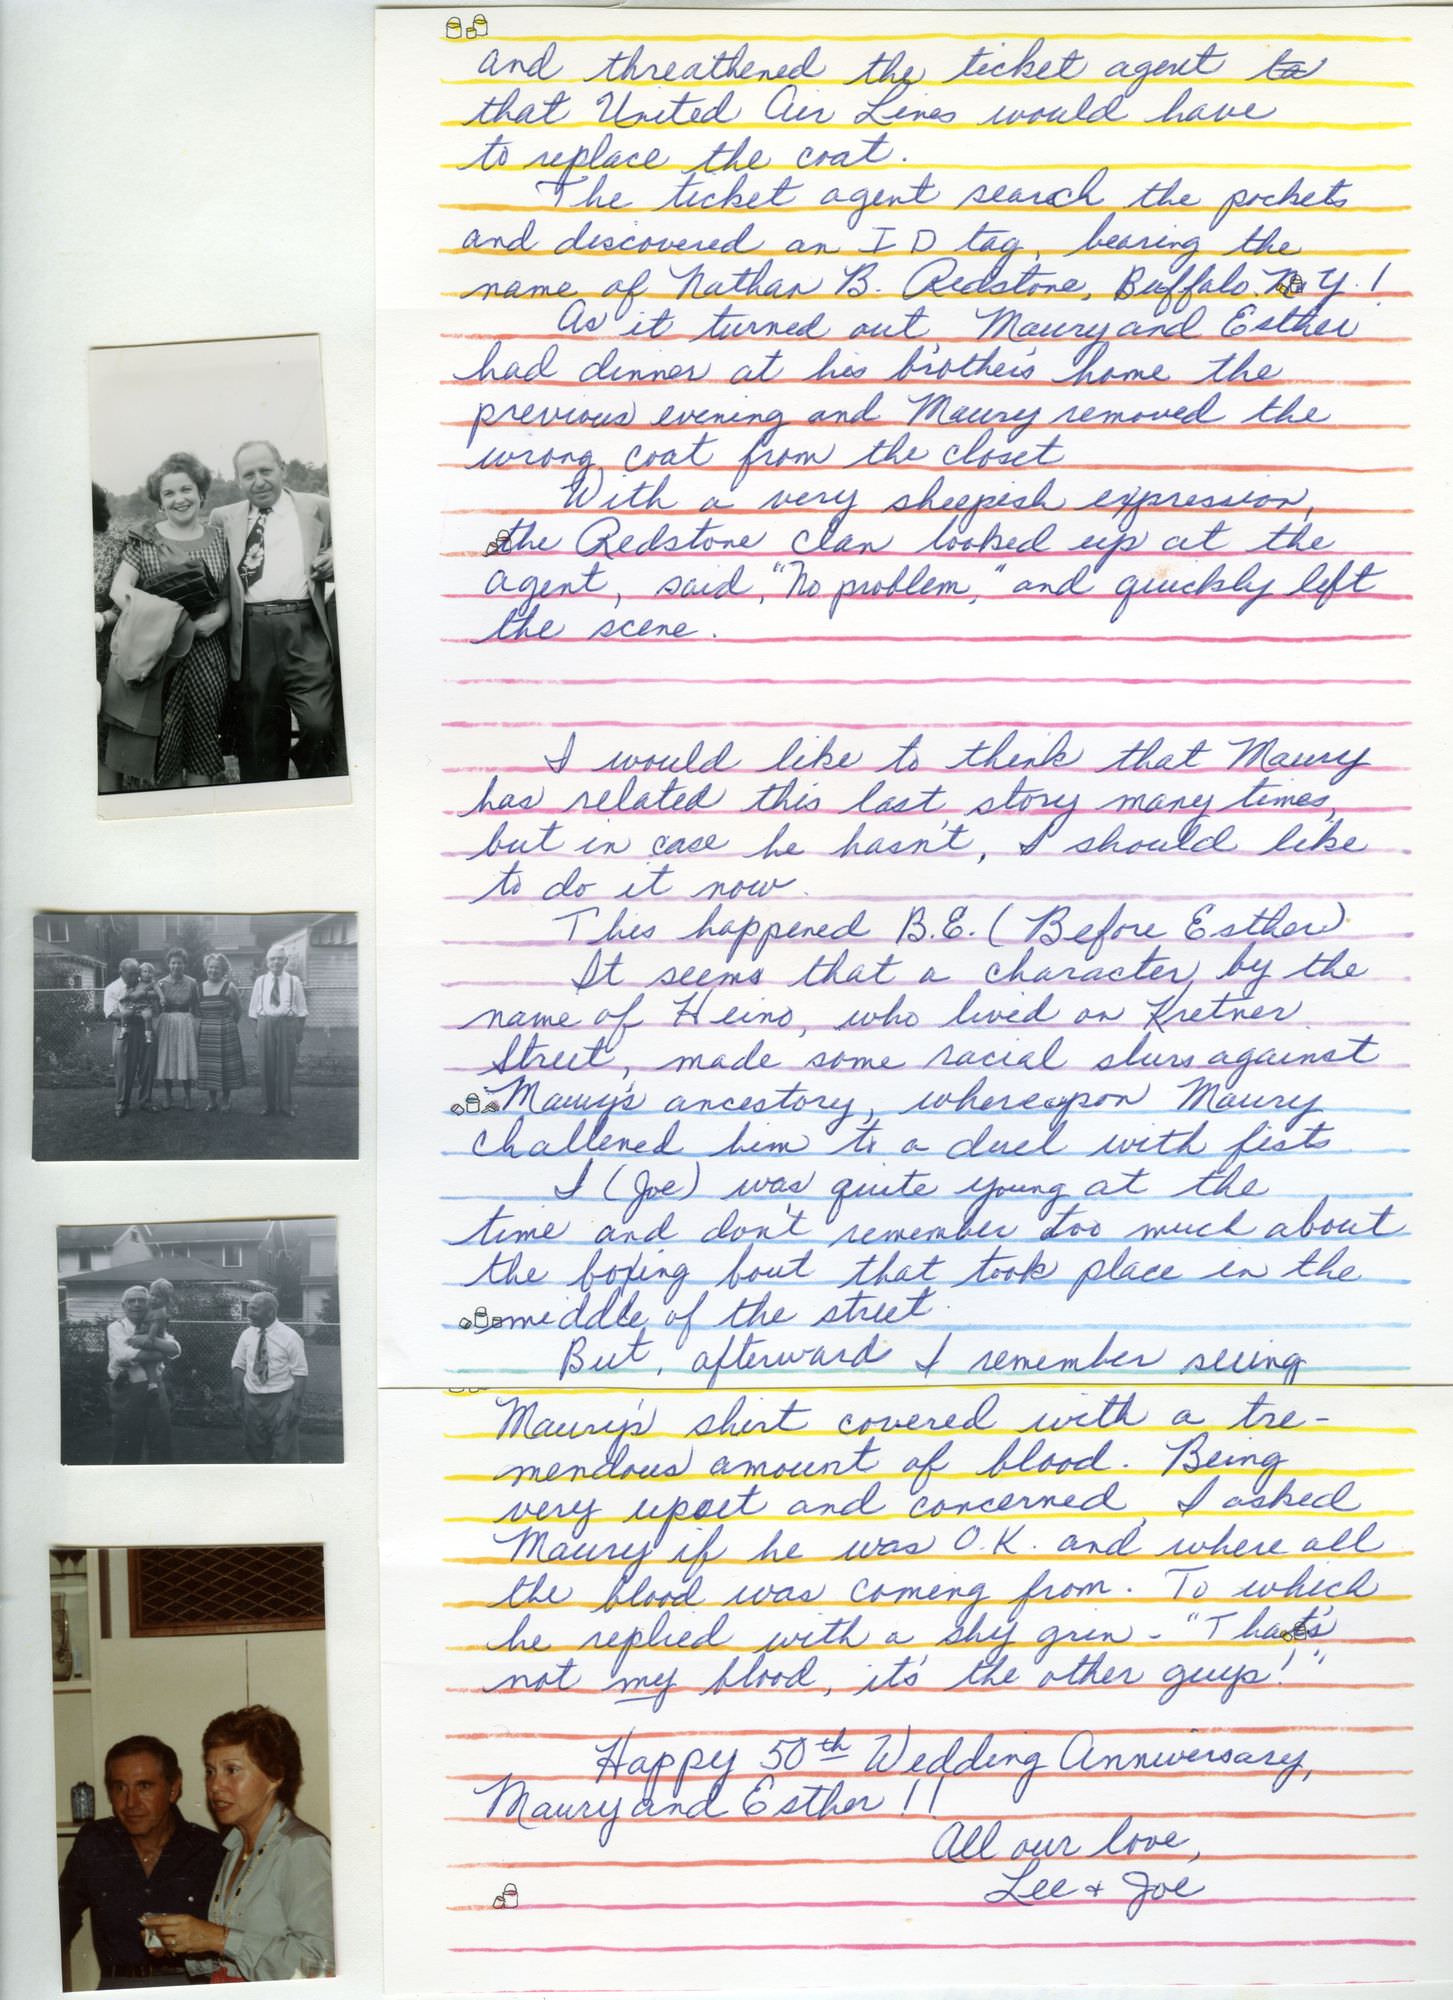 and threathened the ticket agent to
that United Air Lines would have
to replace the coat.
The ticket agent search the pockets
and discovered an I D tag, bearing the
name of Nathan B. Redstone, Buffalo. N Y.!
As it turned out, Maury and Esther
had dinner at his brother's home the
previous evening and Maury removed the
wrong coat from the closet
With a very sheepish expression,
the Redstone clan looked up at the
agent, said, "No problem," and quickly left
the scene.
I would like to think that Maury
has related this last story many times,
but in case he hasn't, I should like
to do it now.
This happened B.E. (Before Esther)
It seems that a character, by the
name of Heino, who lived on Kretner
Street, made some racial slurs against
Maury's ancestory, whereupon Maury
challened him to a duel with fists
I (Joe) was quite young at the
time and don't remember too much about
the boxing bout that took place in the
middle of the street.
But, afterward I remember seeing
Maury's shirt covered with a tre-
mendous amount of blood. Being
very upset and concerned, I asked
Maury if he was O.K. and where all
the blood was coming from. To which
he replied with a shy grin - "That's
not my blood, it's the other guys!"
Happy 50th Wedding Anniversary,
Maury and Esther!!
All our love,
Lee + Joe